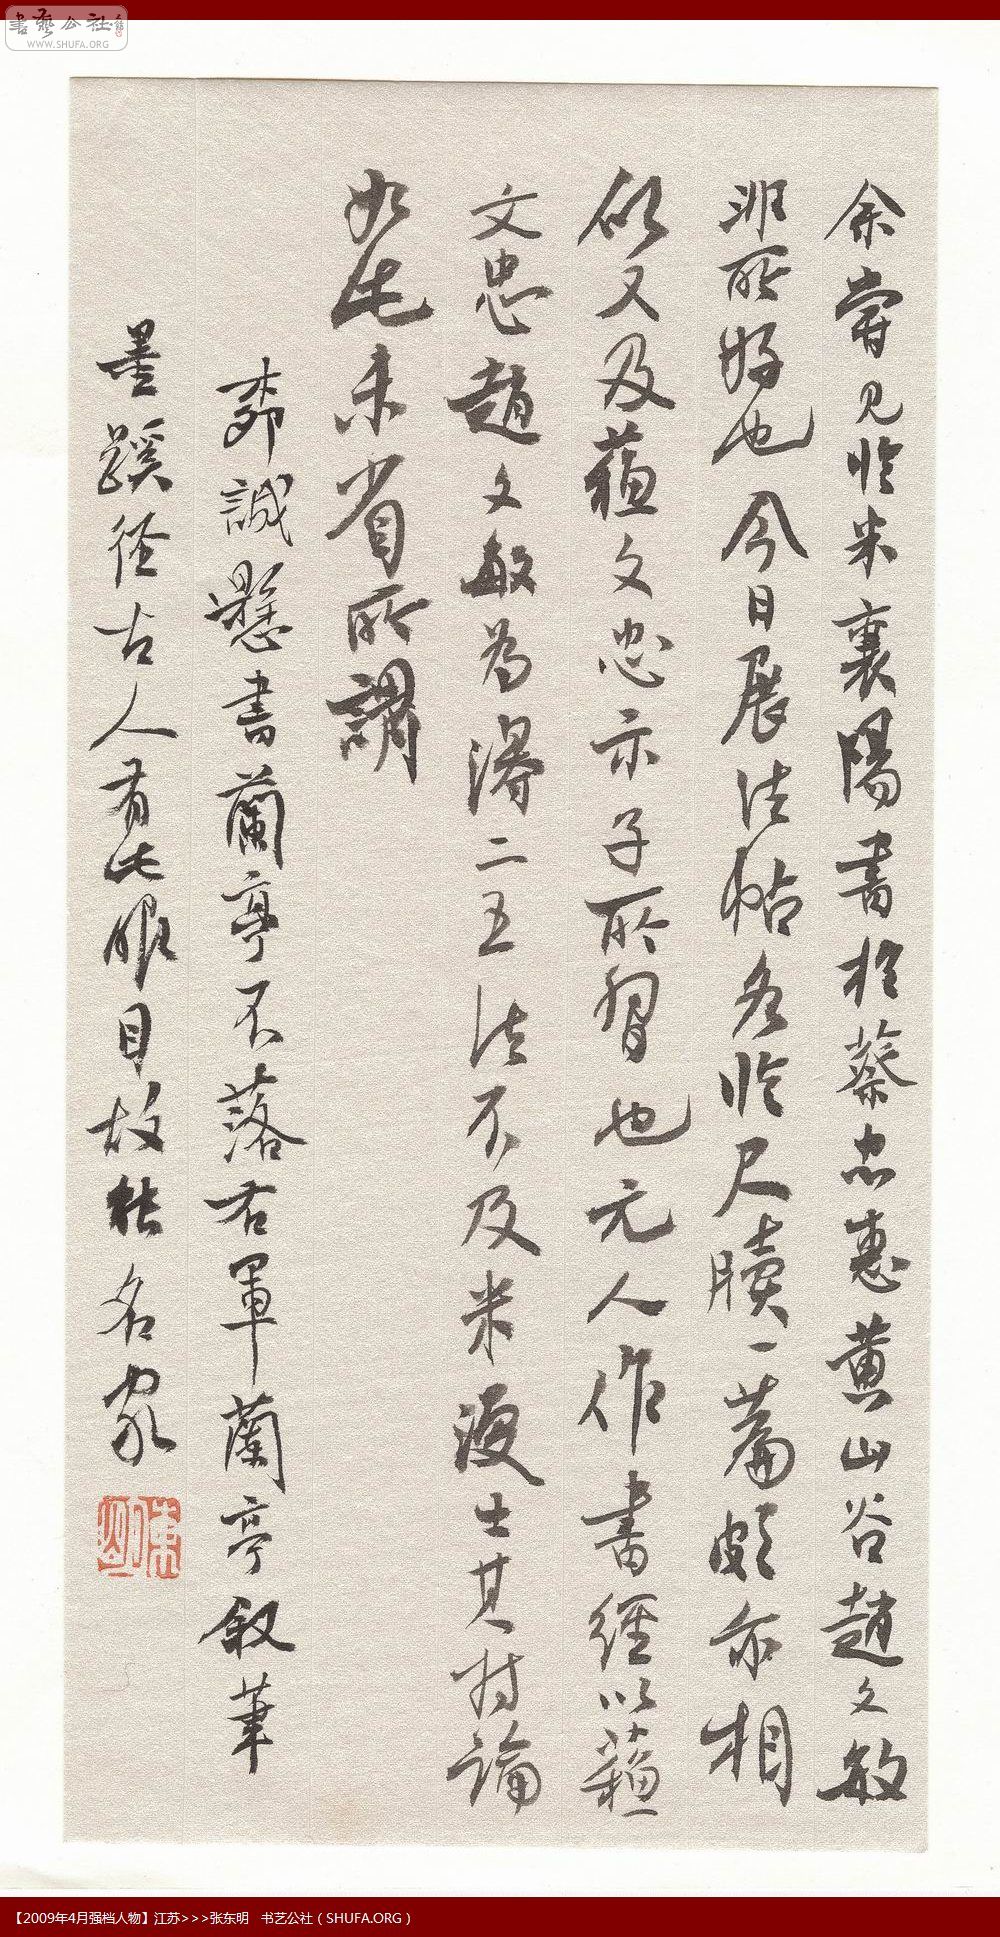 書藝公社
WWW.SHUFA.ORG
余嘗見臨米襄陽書於蔡忠惠黃山谷趙文敏
非所好也今日展法帖各臨尺牘一篇頗亦相
似又及蘇文忠亦予所習也元人作書經以蘇
文忠趙文敏為得二五法不及米漫士其持論
如此未省所謂
柳誠懸書蘭亭不落右軍蘭亭敘筆
墨蹊徑古人有此眼目故能名家
東明
【2009年4月强档人物】江苏>>>张东明 书艺公社（SHUFA.ORG）